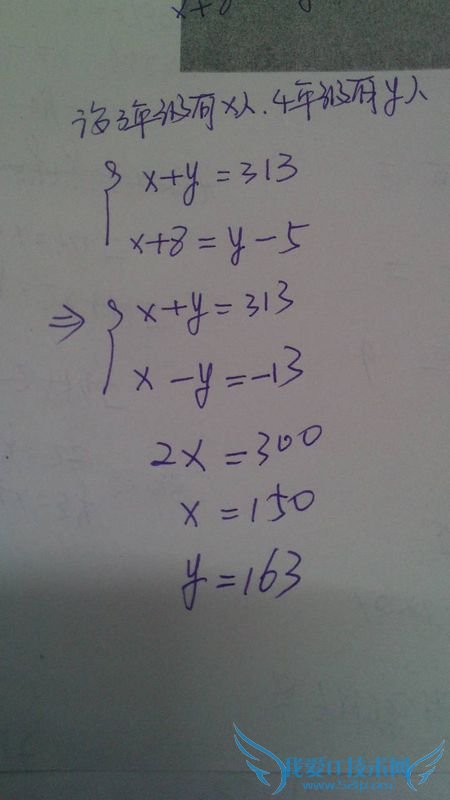 x+8
设3年级有x人.4年级有y人
x+y=313
x+8=y-5
⇒ x+y=313
x-y=-13
2x=300
x=150
y=163
我爱IT技术网
www.52ij.com